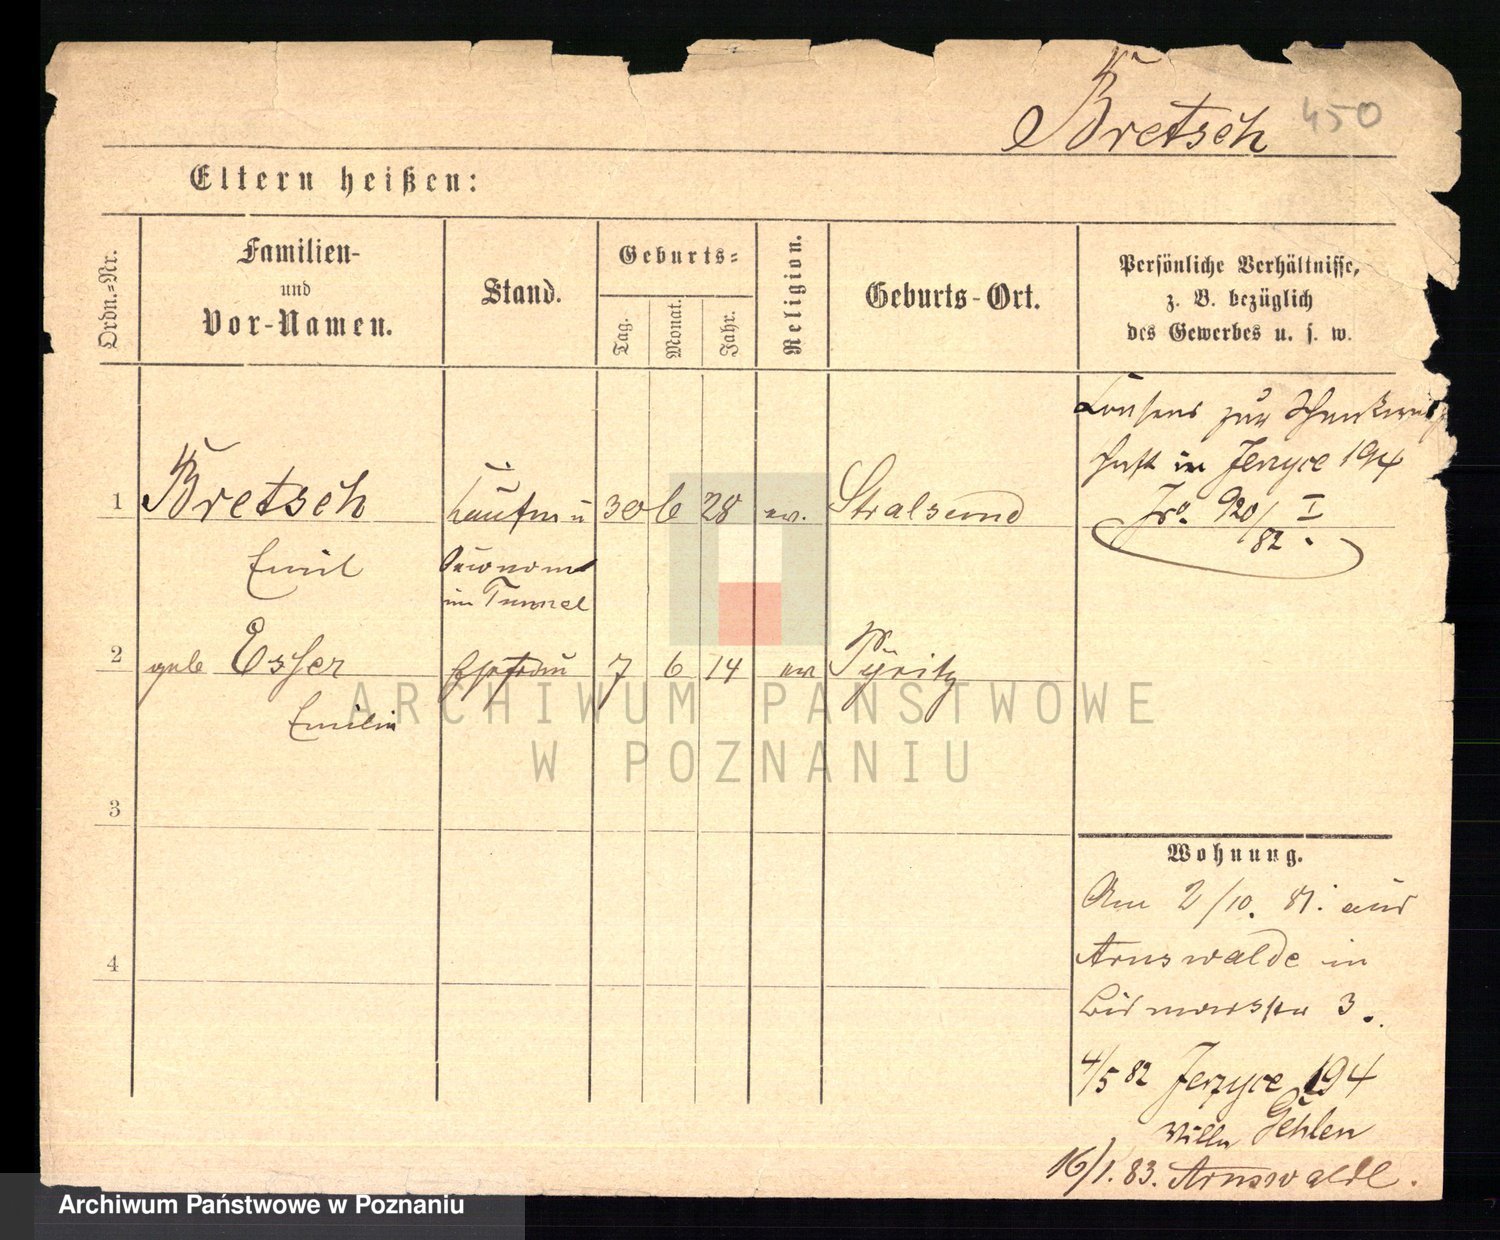 Bretsch 450
Eltern heißen:
Ordn.=Nr.
Familien-
und
Vor-Namen.
Stand.
Geburts=
Tag.
Monat.
Jahr.
Religion.
Geburts-Ort.
Persönliche Verhältnisse,
z. B. bezüglich
des Gewerbes u. s. w.
Consens zur Schankwirth
schaft in Jerzyce 194
Jrs. 920/82 I.
1 Bretsch Kaufm u 30 6 28 ev. Stralsund
Emil Oeconom
im Tunnel
2 geb Esser Ehefrau 7 6 14 ev Pyritz
Emilie
3
4
Wohnung.
Am 2/10. 81. aus
Arnswalde in
Bismarckstr 3.
4/5 82 Jerzyce 194
Villa Gehlen
16/1. 83. Arnswalde.
ARCHIWUM PAŃSTWOWE
W POZNANIU
Archiwum Państwowe w Poznaniu